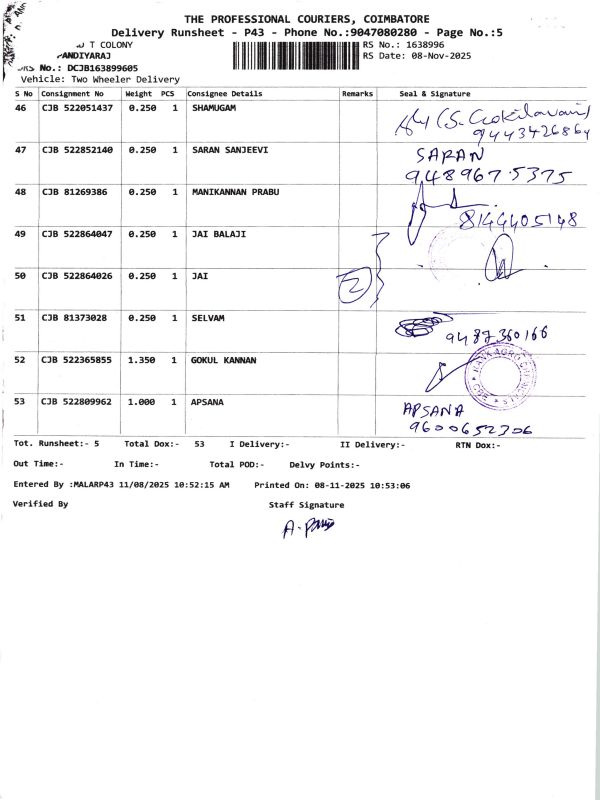 THE PROFESSIONAL COURIERS, COIMBATORE
Delivery Runsheet - P43 - Phone No.:9047080280 - Page No.:5
T COLONY
RS No.: 1638996
ANDIYARAJ
RS Date: 08-Nov-2025
No.: DCJB163899605
Vehicle: Two Wheeler Delivery
S No Consignment No Weight PCS Consignee Details Remarks Seal & Signature
46 CJB 522051437 0.250 1 SHAMUGAM
9443426864
47 CJB 522852140 0.250 1 SARAN SANJEEVI SARAN
9489675375
48 CJB 81269386 0.250 1 MANIKANNAN PRABU
8144405148
49 CJB 522864047 0.250 1 JAI BALAJI
2
50 CJB 522864026 0.250 1 JAI
51 CJB 81373028 0.250 1 SELVAM
9487360166
52 CJB 522365855 1.350 1 GOKUL KANNAN
53 CJB 522809962 1.000 1 APSANA APSANA
9600652306
Tot. Runsheet:- 5 Total Dox:- 53 I Delivery:- II Delivery:- RTN Dox:-
Out Time:- In Time:- Total POD:- Delvy Points:-
Entered By :MALARP43 11/08/2025 10:52:15 AM Printed On: 08-11-2025 10:53:06
Verified By Staff Signature